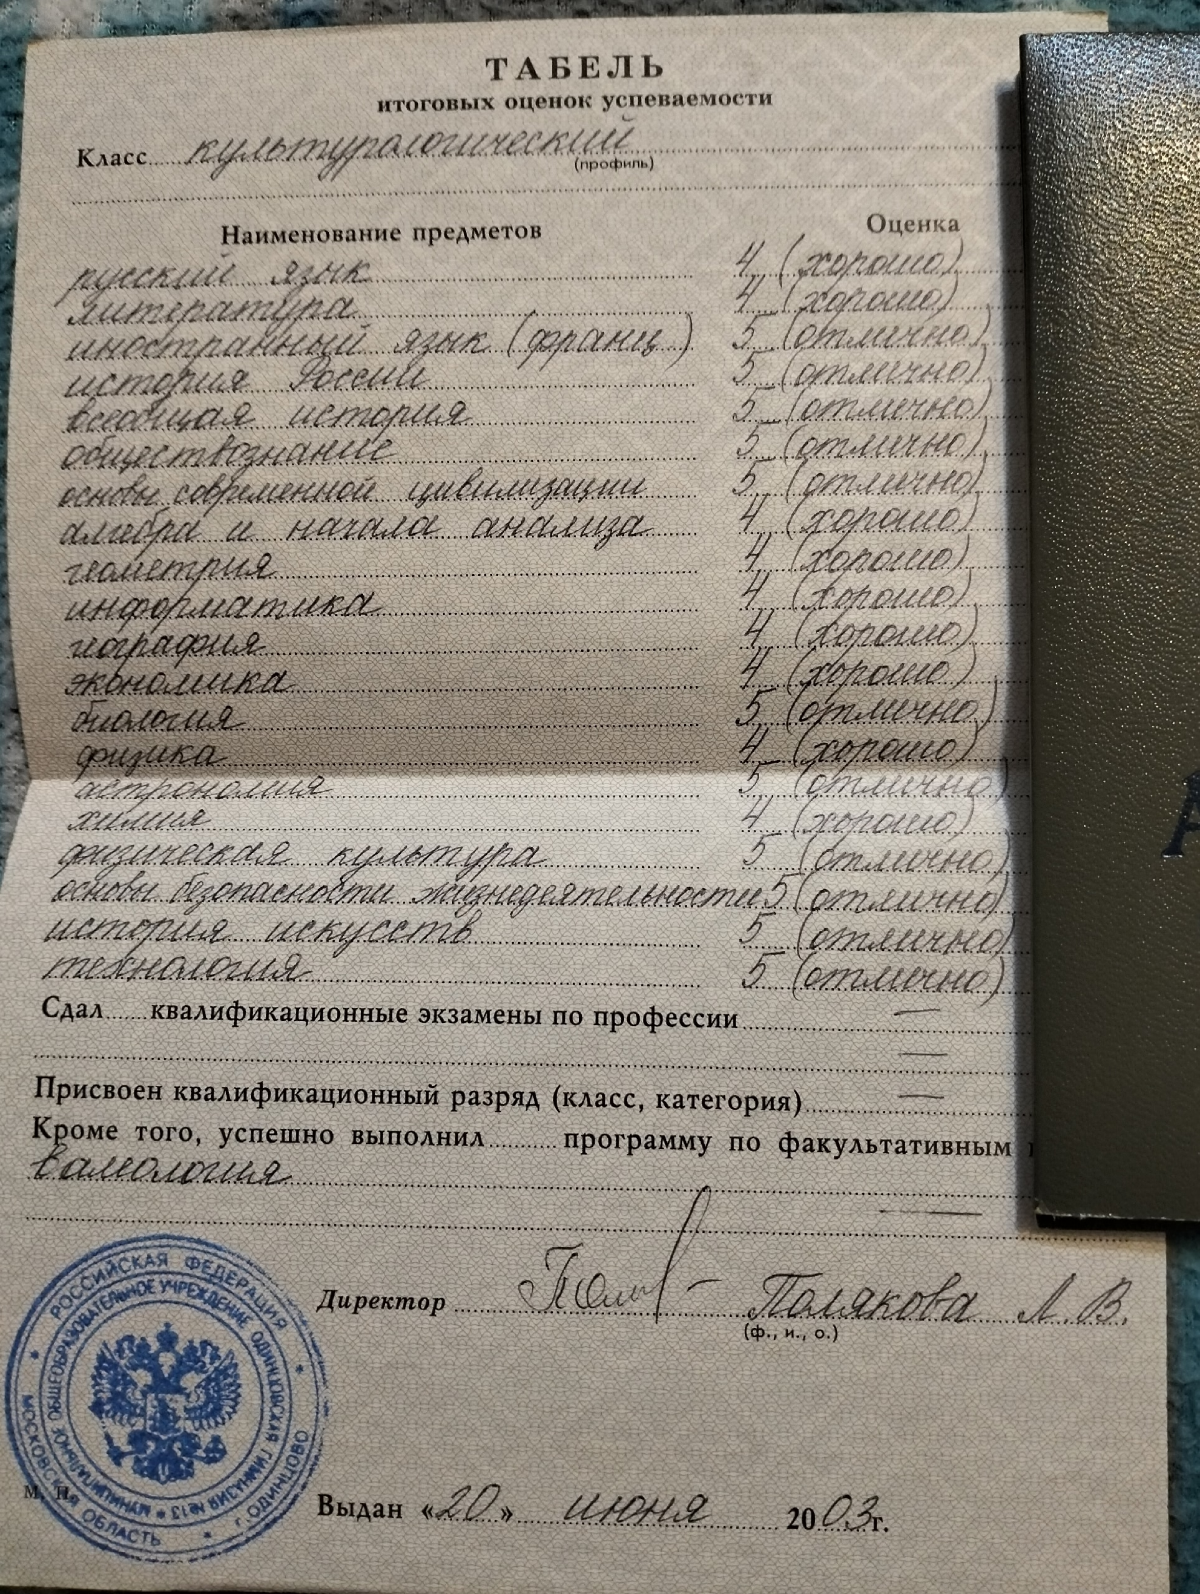 ТАБЕЛЬ
итоговых оценок успеваемости
Класс культурологический
(профиль)
Наименование предметов Оценка
русский язык 4 (хорошо)
литература 4 (хорошо)
иностранный язык (франц) 5 (отлично)
история России 5 (отлично)
всеобщая история 5 (отлично)
обществознание 5 (отлично)
основы современной цивилизации 5 (отлично)
алгебра и начала анализа 4 (хорошо)
геометрия 4 (хорошо)
информатика 4 (хорошо)
география 4 (хорошо)
экономика 4 (хорошо)
биология 5 (отлично)
физика 4 (хорошо)
астрономия 5 (отлично)
химия 4 (хорошо)
физическая культура 5 (отлично)
основы безопасности жизнедеятельности 5 (отлично)
история искусств 5 (отлично)
технология 5 (отлично)
Сдал квалификационные экзамены по профессии —
—
Присвоен квалификационный разряд (класс, категория) —
Кроме того, успешно выполнил программу по факультативным
валеология
Директор Полякова Л.В.
(ф., и., о.)
РОССИЙСКАЯ ФЕДЕРАЦИЯ * г. ОДИНЦОВО * МОСКОВСКАЯ ОБЛАСТЬ
МУНИЦИПАЛЬНОЕ ОБЩЕОБРАЗОВАТЕЛЬНОЕ УЧРЕЖДЕНИЕ ОДИНЦОВСКАЯ ГИМНАЗИЯ №13
М. П.
Выдан «20» июня 2003г.
А